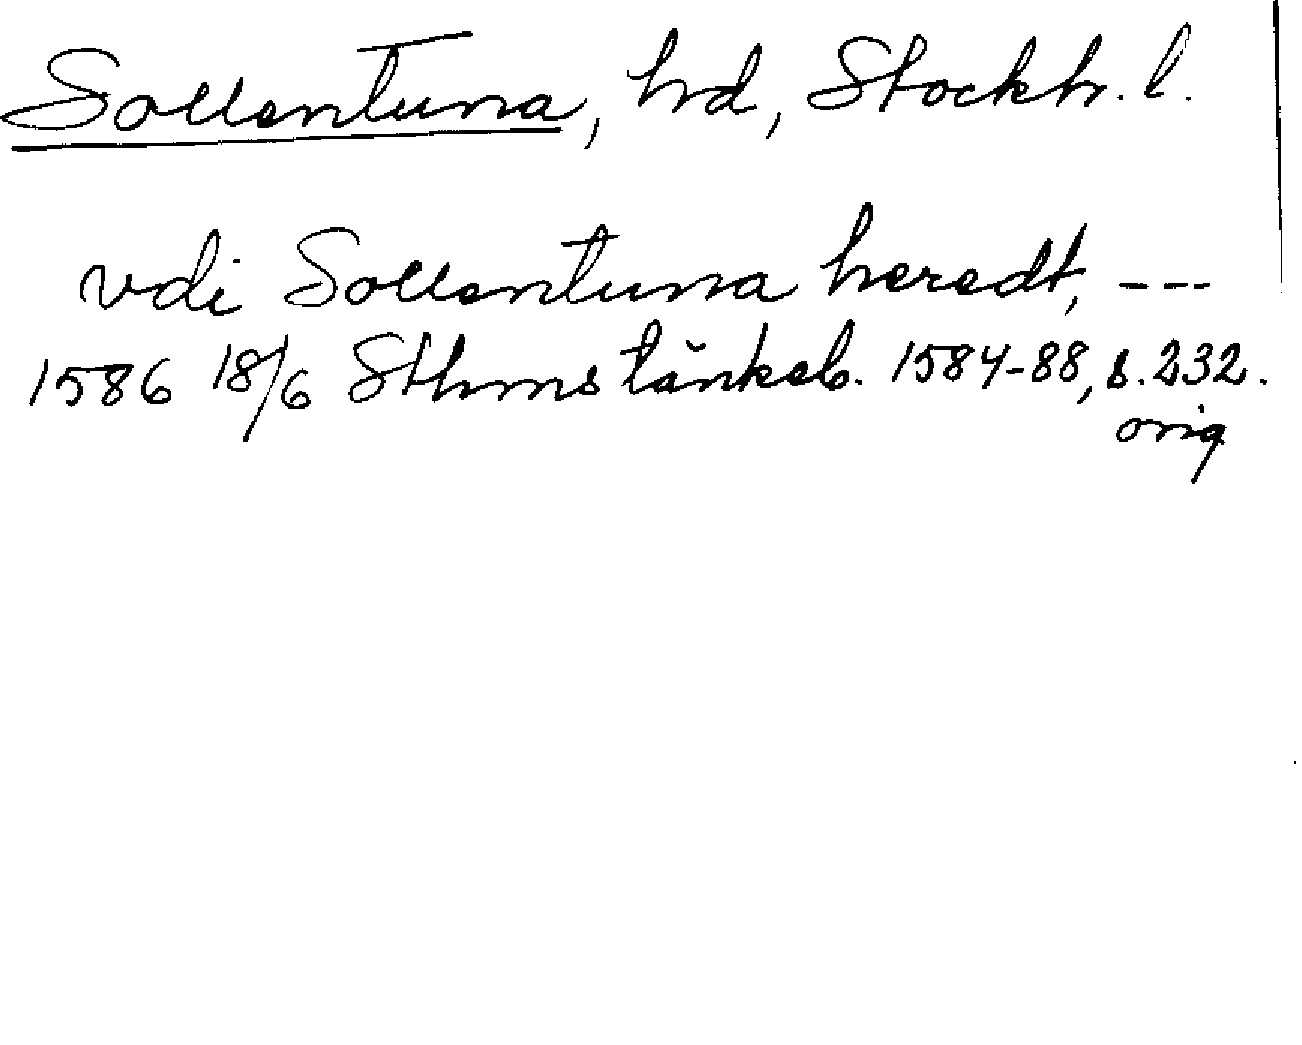 Sollentuna, hd, Stockh. l.
vdi Sollentuna heredt, ---
1586 18/6 Sthms tänkeb. 1584-88, s. 232.
orig